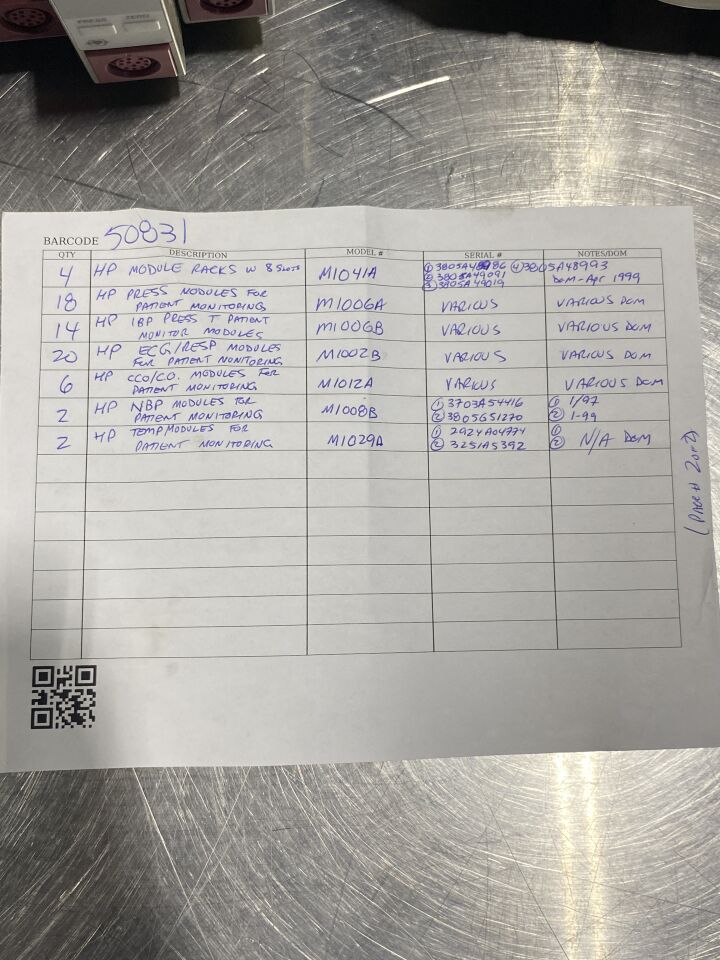 PRESS ZERO
BARCODE 50831
QTY DESCRIPTION MODEL # SERIAL # NOTES/DOM
4 HP MODULE RACKS W 8 SLOTS M1041A ① ④ 3805A48993
② 3805A49091
③ 3805A49019 DOM-Apr 1999
18 HP PRESS MODULES FOR
PATIENT MONITORING M1006A VARIOUS VARIOUS DOM
14 HP IBP PRESS T PATIENT
MONITOR MODULES M1006B VARIOUS VARIOUS DOM
20 HP ECG/RESP MODULES
FOR PATIENT MONITORING M1002B VARIOUS VARIOUS DOM
6 HP CCO/C.O. MODULES FOR
PATIENT MONITORING M1012A VARIOUS VARIOUS DOM
2 HP NBP MODULES FOR
PATIENT MONITORING M1008B ① 3703A54416 ① 1/97
② 3805G51270 ② 1-99
2 HP TEMP MODULES FOR
PATIENT MONITORING M1029A ① 2924A04774 ①
② 3251A5392 ② N/A DOM
(PAGE # 2 of 2)